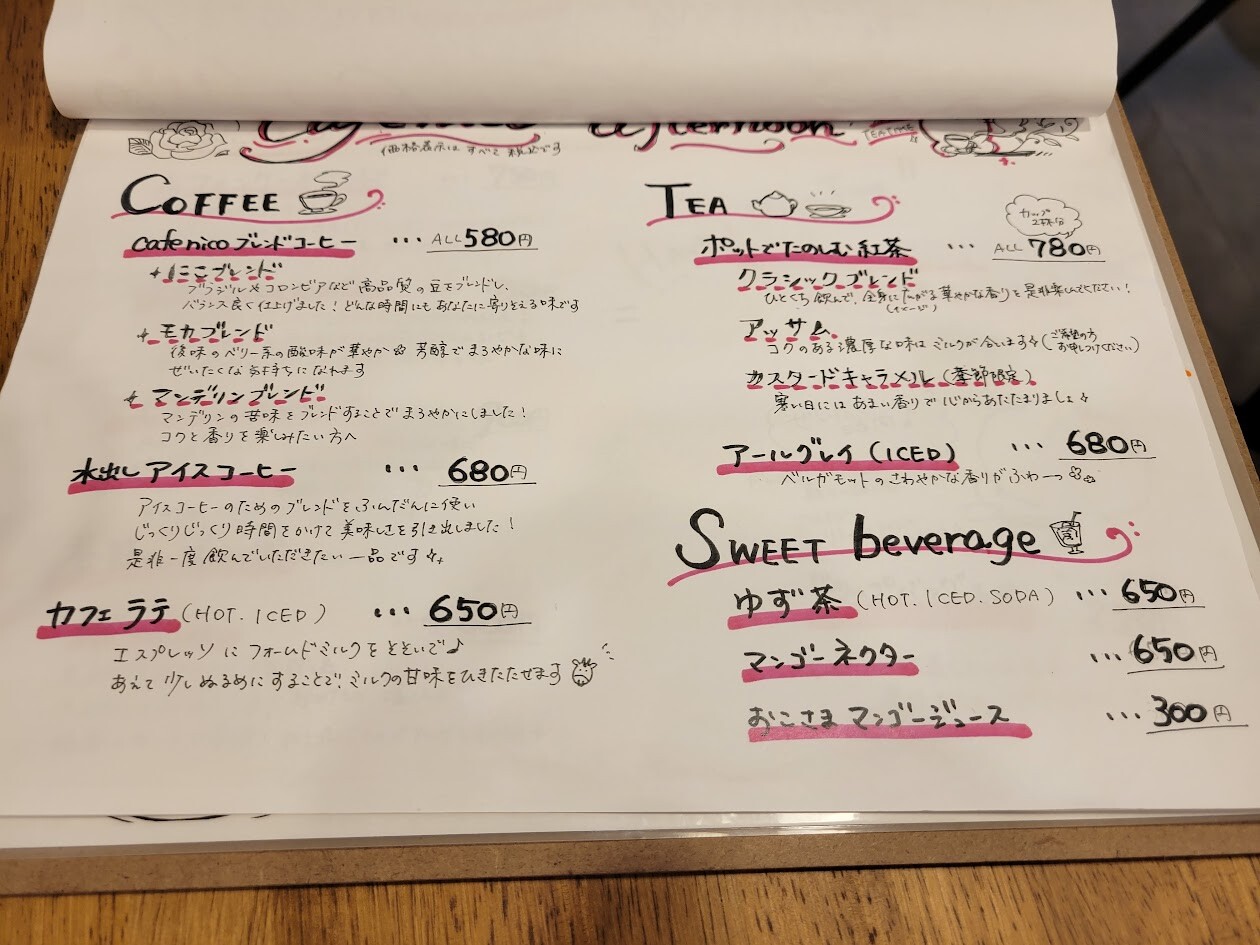 Cafe nico afternoon
TEA TIME
価格表示は すべて 税込です
COFFEE
cafe nico ブレンドコーヒー ... ALL 580円
+ にこブレンド
ブラジルやコロンビアなど高品質の豆をブレンドし、
バランス良く仕上げました!どんな時間にもあなたに寄りそえる味です
+ モカブレンド
後味のベリー系の酸味が華やか 芳醇でまろやかな味に
ぜいたくな気持ちになれます
+ マンデリンブレンド
マンデリンの苦味をブレンドすることでまろやかにしました!
コクと香りを楽しみたい方へ
水出しアイスコーヒー ... 680円
アイスコーヒーのためのブレンドをふんだんに使い
じっくりじっくり時間をかけて美味しさを引き出しました!
是非一度飲んでいただきたい一品です
カフェラテ (HOT. ICED) ... 650円
エスプレッソにフォームドミルクをそそいで♪
あえて少しぬるめにすることで!ミルクの甘味をひきたたせます
TEA
カップ
2杯分
ポットでたのしむ紅茶 ... ALL 780円
クラシックブレンド
ひとくち飲んで、全身に広がる華やかな香りを是非楽しんでください!
(イメージ)
アッサム
コクのある濃厚な味はミルクが合います (ご希望の方
お申しつけください)
カスタードキャラメル (季節限定)
寒い日にはあまい香りで心からあたたまりましょ
アールグレイ (ICED) ... 680円
ベルガモットのさわやかな香りがふわーっ
SWEET beverage
ゆず茶 (HOT. ICED. SODA) ... 650円
マンゴーネクター ... 650円
おこさまマンゴージュース ... 300円